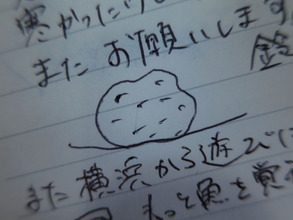 寒かったり
またお願いします
鈴
また横浜から遊びに
もっと魚を覚